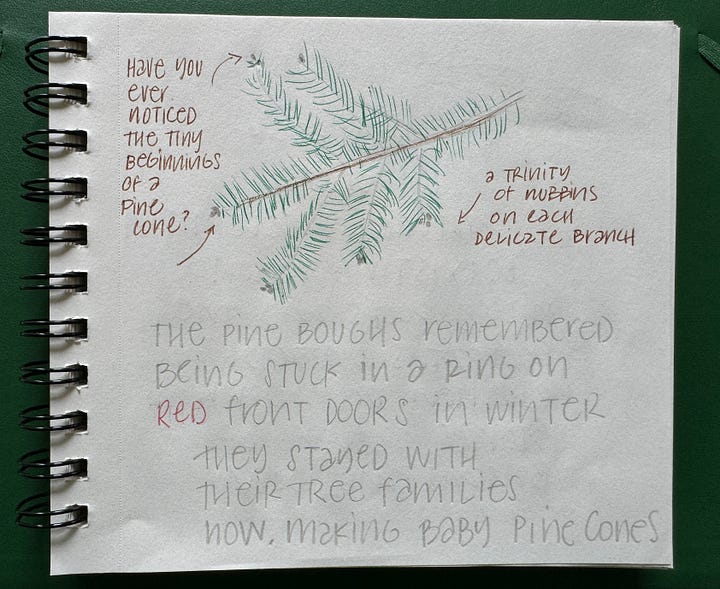 Have you
ever
noticed
the tiny
beginnings
of a
pine
cone?
a trinity
of nubbins
on each
delicate branch
The pine boughs remembered
being stuck in a ring on
red front doors in winter
they stayed with
their tree families
now, making baby pine cones